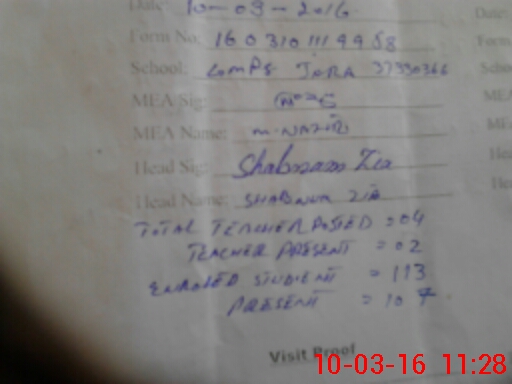 Date: 10-03-2016
Form No: 160310111 9958
School: COMPS JARA 37330366
MEA Sig:
MEA Name: M. NAZIR
Head Sig: Shabnam Zia
Head Name: SHABNUM ZIA
TOTAL TEACHER POSTED = 04
TEACHER PRESENT = 02
ENROLED STUDENT = 113
PRESENT = 107
Visit Proof
10-03-16 11:28
Date:
Form
Scho
MEA
ME
Hea
He